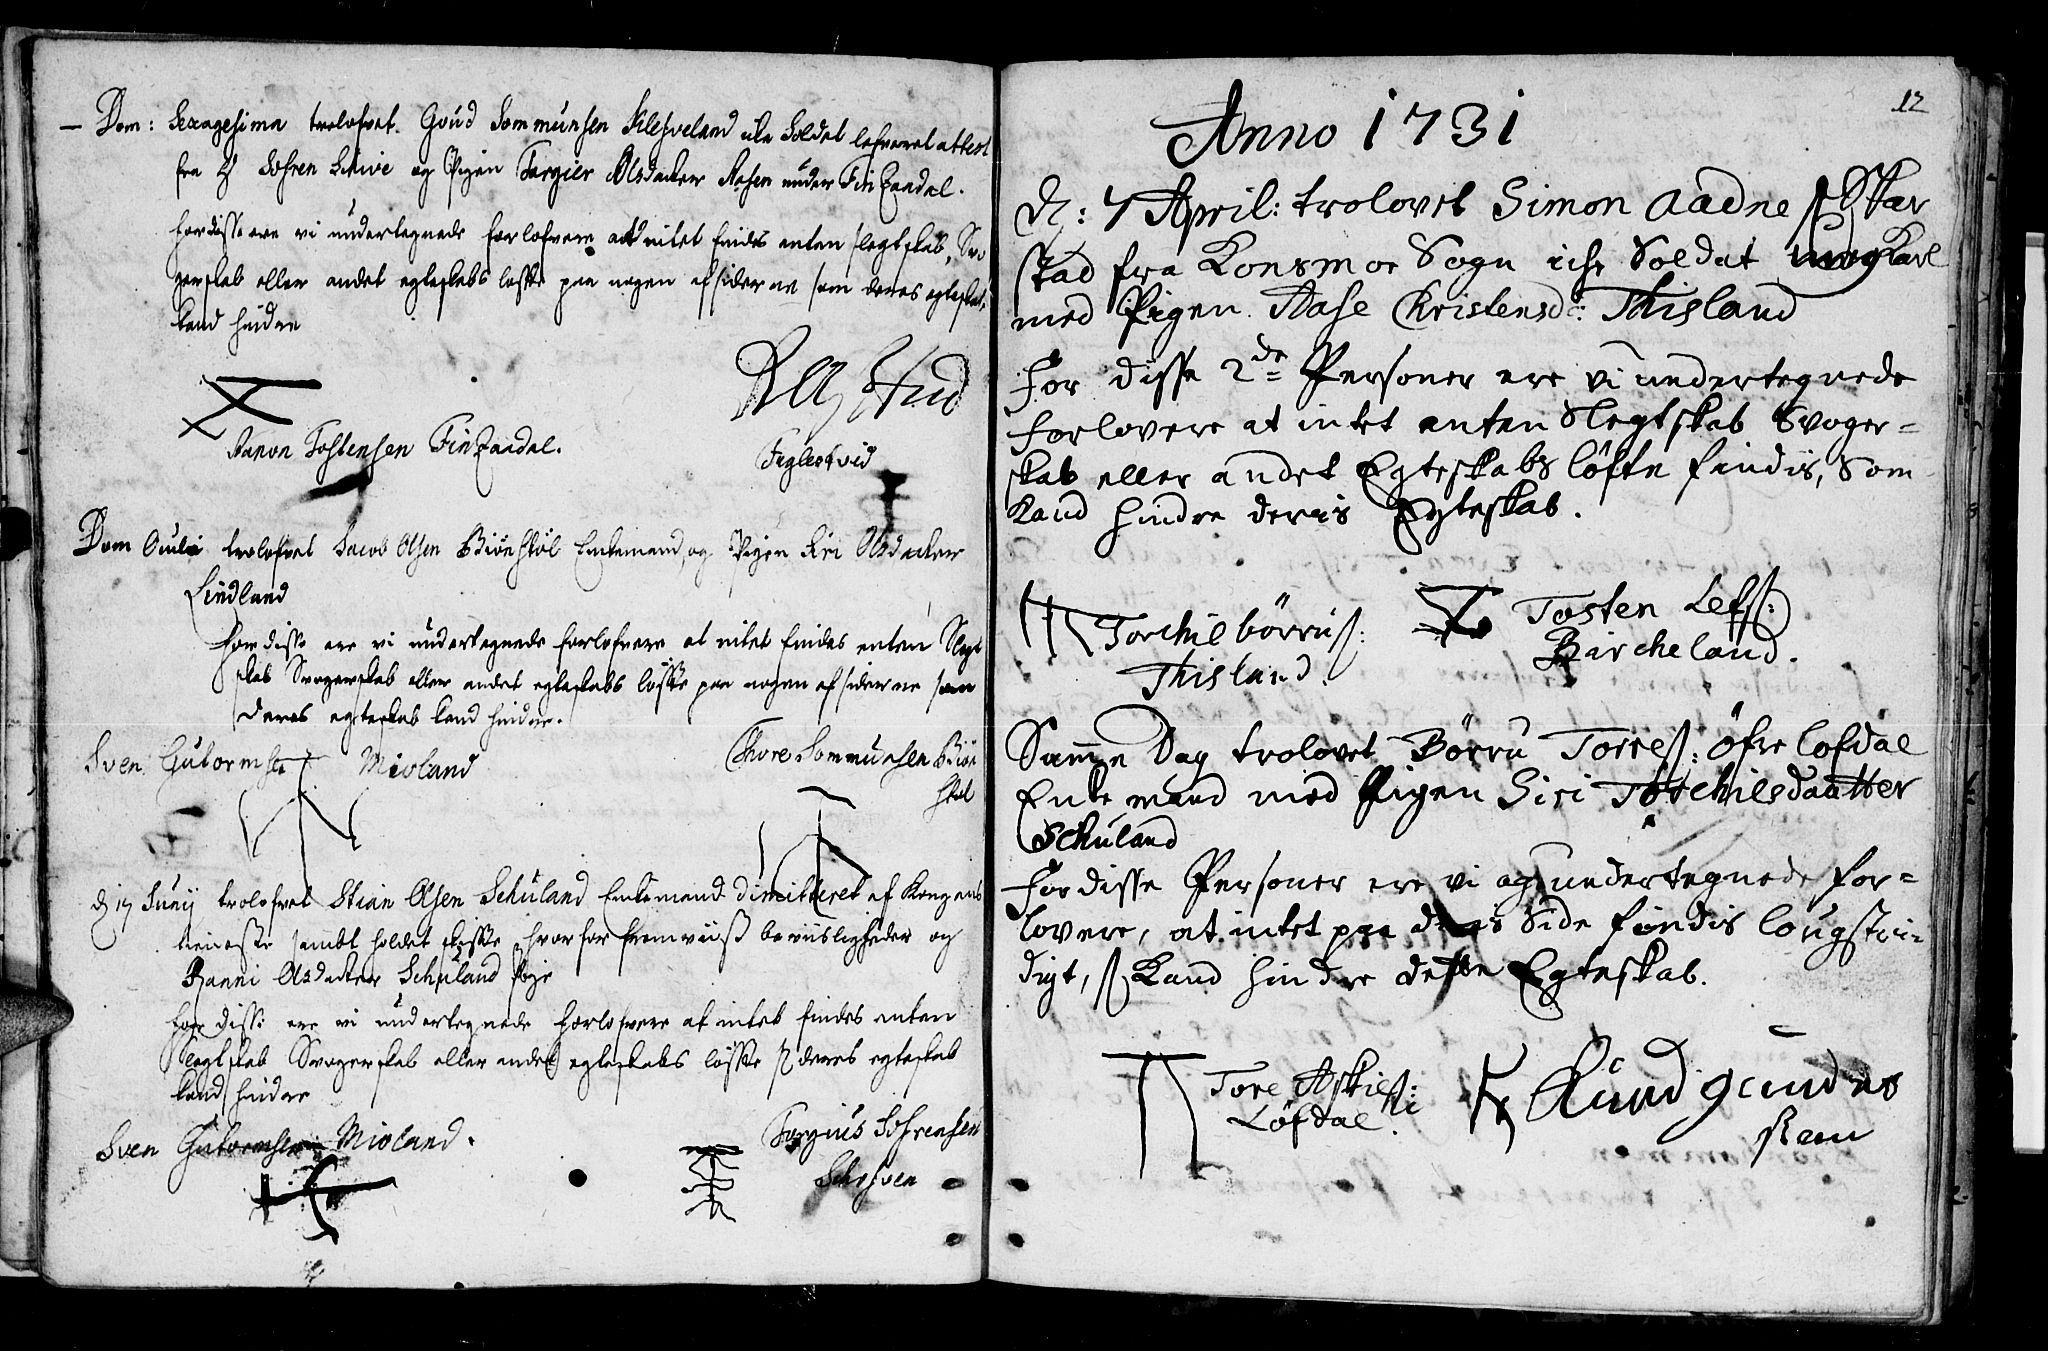 Dom: Sexagesima trolofvet. Goud Sommunsen Klefveland ute Soldat lefveret attest
fra H Sofren Schive og Pigen Torgier Olsdatter Aasen under Fin Zaadel.
for disse ere vi undertegnede forlofvere at intet findes enten slegtskab, Svo
gerskab eller andet egteskabs lofte paa nogen af siderne som deres egteskab
kand hindre
Aanon Tostensen Fin Zaadal.
Feglestvid
Dom Culi trolofvet Jacob Olsen Biönstöl Enkemand, og Pigen Siri Olsdatter
Lindland
for disse ere vi undertegnede forlofvere at intet findes enten Slegt
skab Svogerskab eller andet egteskabs löfte paa nogen af siderne som
deres egteskab kand hindre.
Sven Gutormsen Mioland
Thore Sommunsen Biön
stöl
d 17 Junij trolofvet Stian Olsen Schuland Enkemand dimitteret af Kongens
tieneste samt holdet skifte hvorfor fremviist beviisligheder og
Ranni Olsdatter Schuland Pige
for disse ere vi undertegnede forlofvere at intet findes enten
Slegtskab Svogerskab eller andet egteskabs löfte s deres egteskab
kand hindre
Sven Gutormsen Mioland.
Torgius Sofrensen
12
Anno 1731
d: 7 April: trolovet Simon Aadne s Skar
stad fra Konsmoe Sogn iche Soldat ung Karl
med Pigen Aase Christensd: Thisland
For disse 2de Personer ere vi undertegnede
forlovere at intet enten Slegtskab Svoger=
skab eller andet Egteskabs löfte findis, som
kand hindre deris Egteskab.
Torchil börrus:
Thisland.
Tosten Lefs:
Bircheland.
Samme Dag trolovet Börru Torres: öfre lofdal
Enke mand med Pigen Siri Torchilsdaatter
Schuland
For disse Personer ere vi og undertegnede for=
lovere, at intet paa deris Side findis lougstrii=
digt, s kand hindre dette Egteskab.
Tore Askils:
Löfdal.
Aund gundes